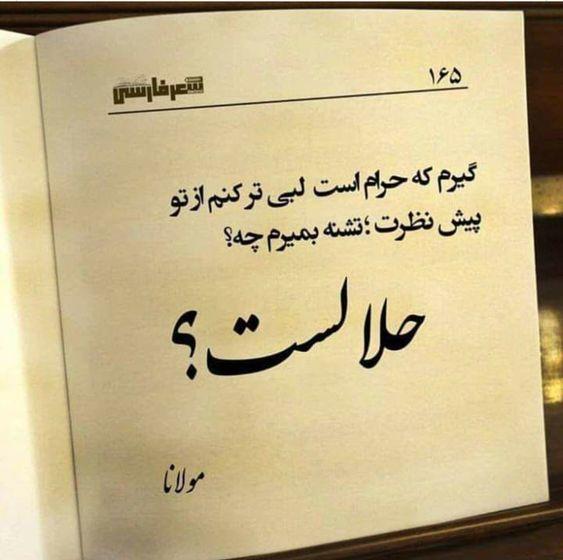 ۱۶۵
شعر فارسی
گیرم که حرام است لبی تر کنم از تو
پیش نظرت ؛ تشنه بمیرم چه؟
حلالست؟
مولانا